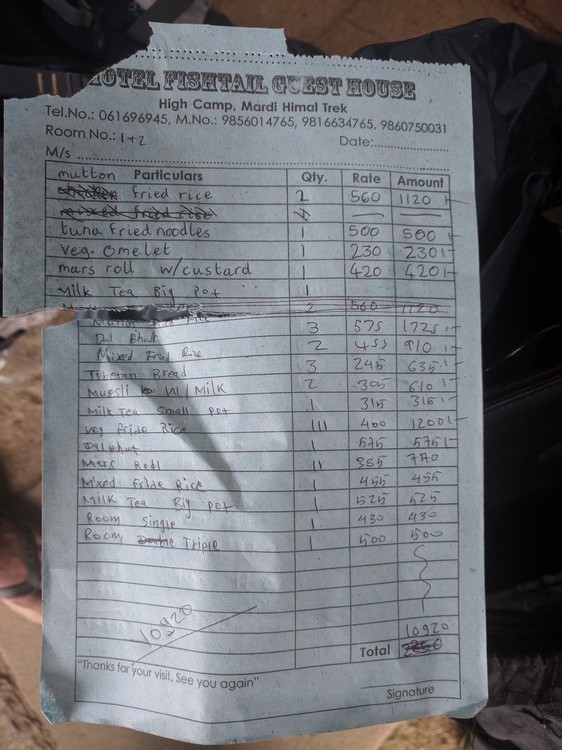 HOTEL FISHTAIL GUEST HOUSE
High Camp, Mardi Himal Trek
Tel.No.: 061696945, M.No.: 9856014765, 9816634765, 9860750031
Room No.: 1+2 Date:
M/s
Particulars Qty. Rate Amount
mutton
chicken fried rice 2 560 1120
mixed fried rice
tuna fried noodles 1 500 500
veg. omelet 1 230 230
mars roll w/custard 1 420 420
Milk Tea Big Pot 1
2 560 1120
Dal Bhat 3 575 1725
Mixed Fried Rice 2 455 910
Tibetan Bread 3 245 635
Muesli W/Milk 2 305 610
Milk Tea Small Pot 1 315 315
Veg fride Rice III 400 1200
Dalbhat 1 575 575
Mars Roll II 770
Mixed fride Rice 1 455 455
Milk Tea Big pot 1 525 525
Room Single 1 430 430
Room Triple 1 500 500
10920
10920
Total
"Thanks for your visit, See you again"
Signature